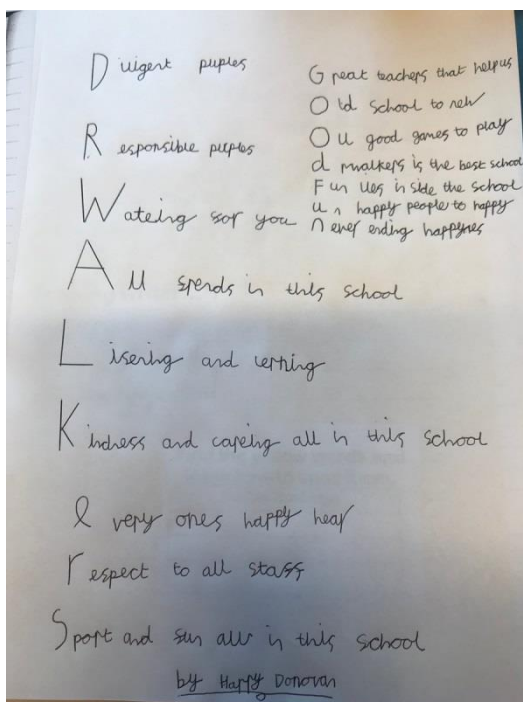 Diligent puples
Responsible puples
Wateing sor you
All spends in this school
Lisening and lerning
Kindness and careing all in this school
every ones happy hear
respect to all stass
Sport and sun all in this school
by Happy Donovan
Great teachers that help us
Old school to new
Ou good games to play
drwalkers is the best school
Fun in side the school
un happy people to happy
never ending happynes